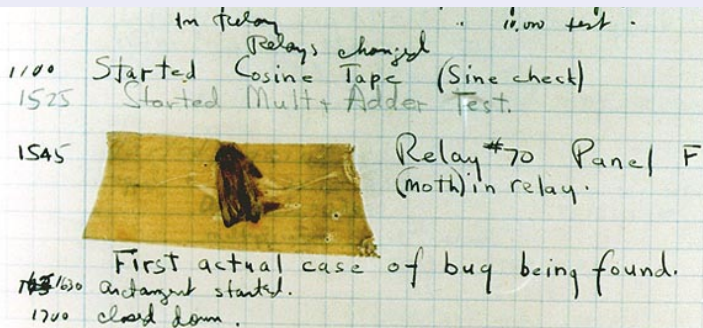 In Relay 11,000 test.
Relays changed
1100 Started Cosine Tape (Sine check)
1525 Started Mult+ Adder Test.
1545 Relay #70 Panel F
(moth) in relay.
First actual case of bug being found.
1630 Antangent started.
1700 closed down.